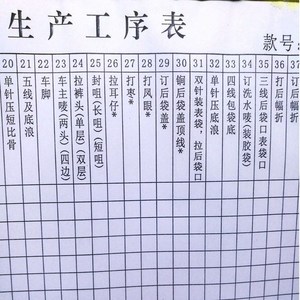 生产工序表
款号:
20 21 22 23 24 25 26 27 28 29 30 31 32 33 34 35 36 37
单针压短比骨
五线及底浪
车脚
车主唛(两头)(四边)
拉裤头(单层)(双层)
封咀(长咀)(短咀)
拉耳仔*
打枣*
打凤眼*
订后袋盖*
锏后袋盖顶线*
双针装表袋,拉后袋口
单针压底浪
四线包袋底
订洗水唛(装胶袋)
三线后袋口表袋口
打后幅折
订后幅折